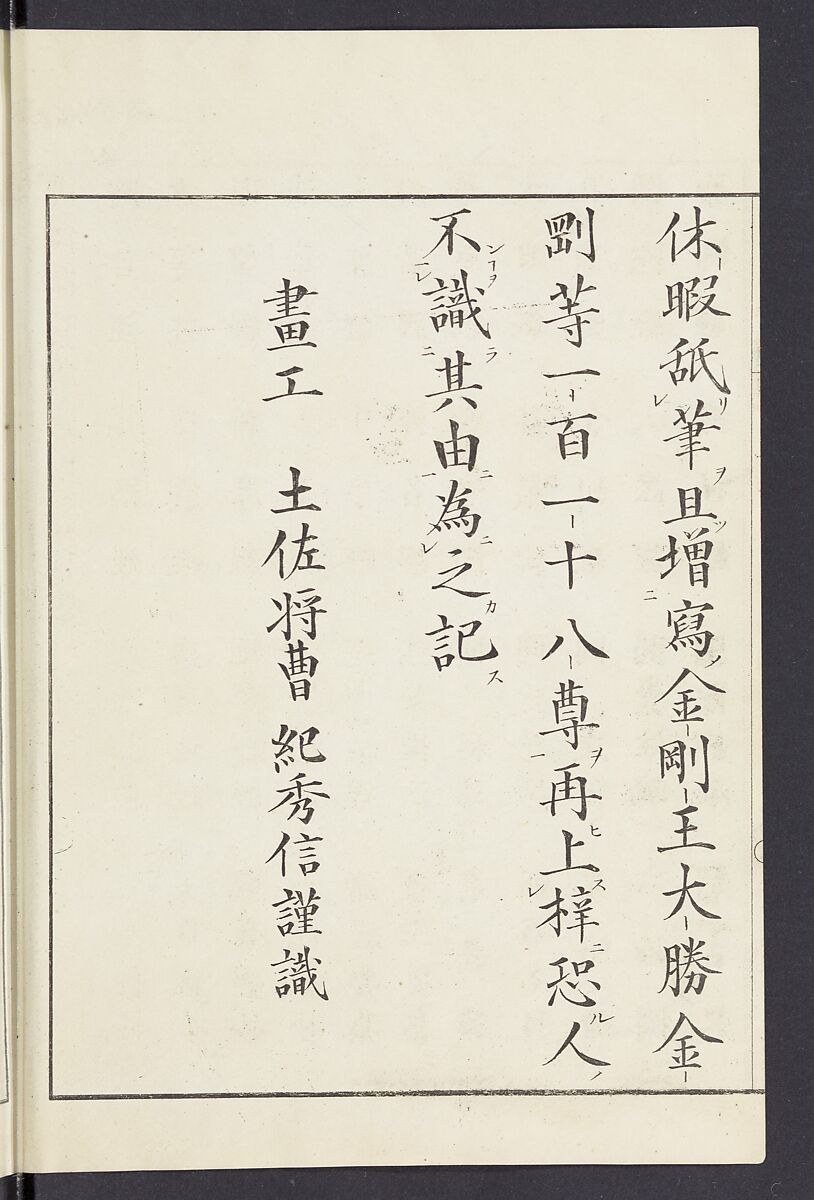 休暇舐筆且增寫金剛王大勝金
剛等一百一十八尊再上梓恐人
不識其由為之記
畫工 土佐将曹紀秀信謹識